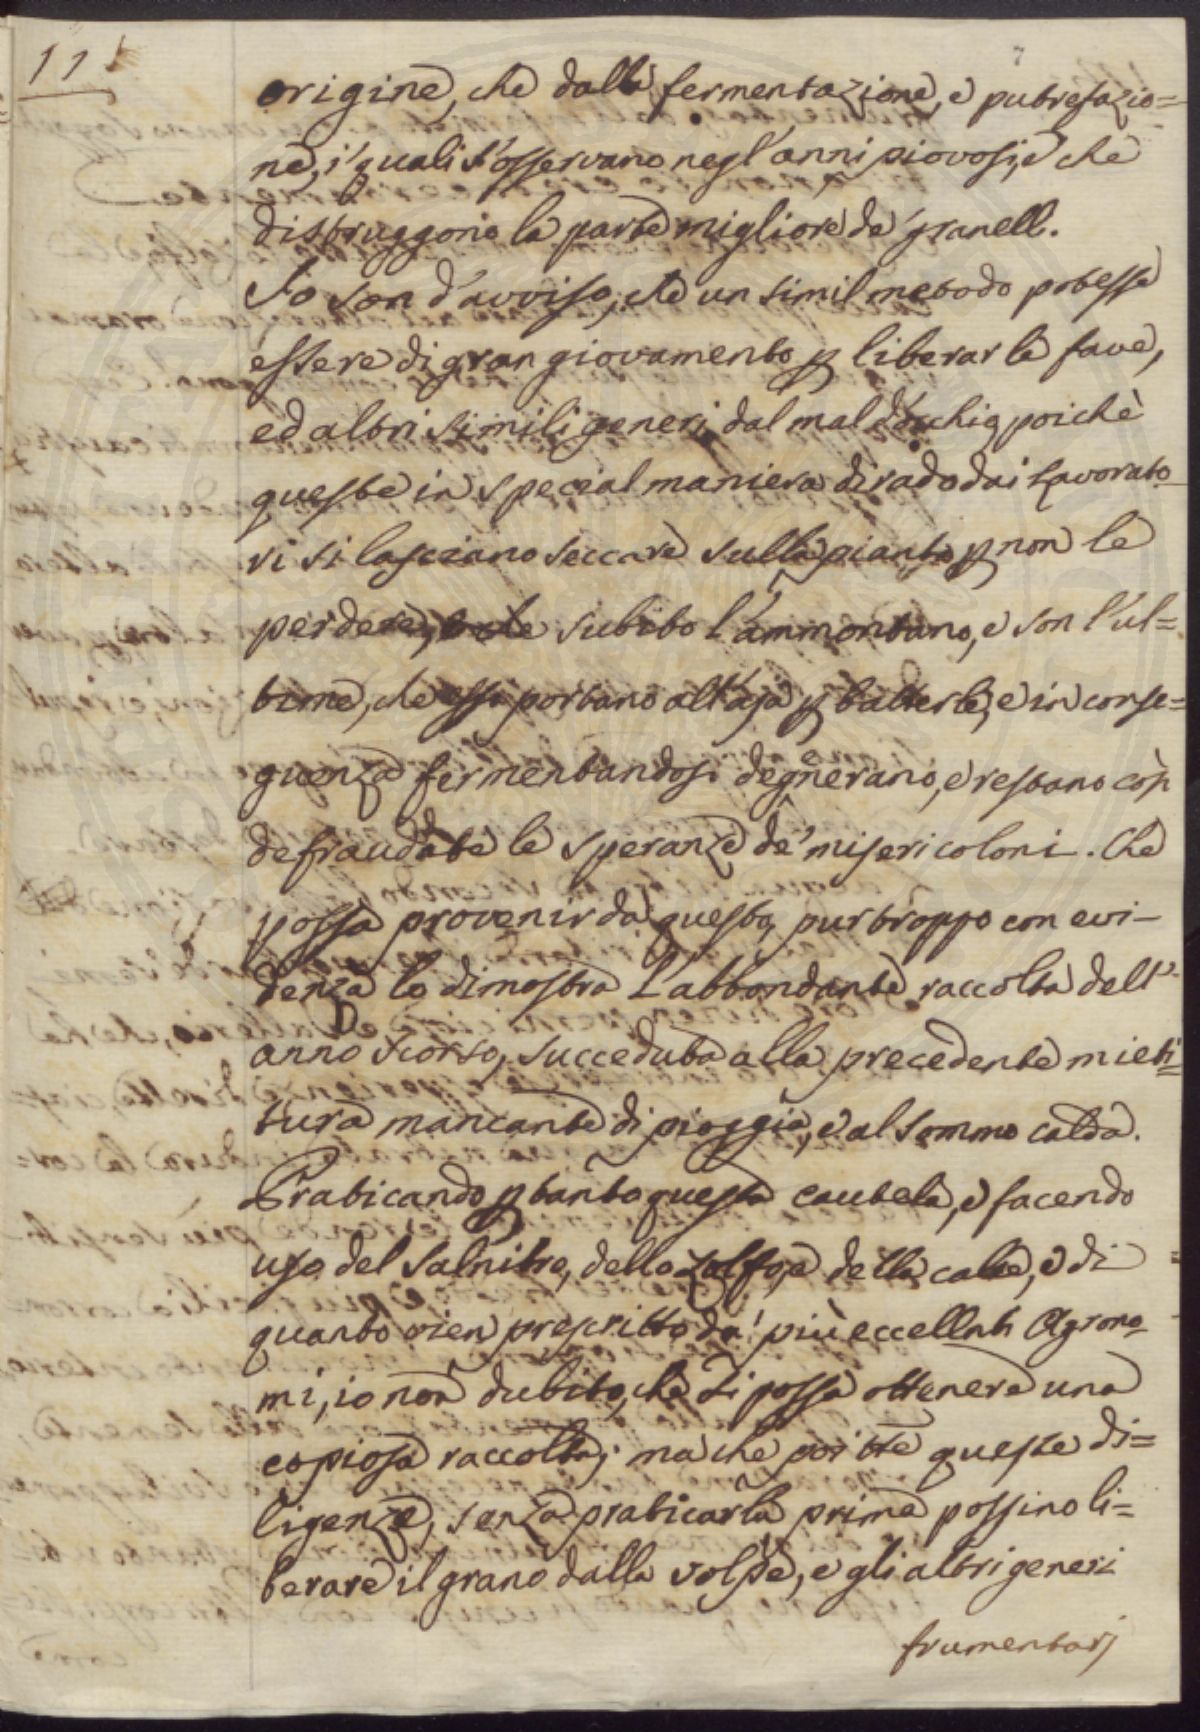 11
origine, che dalla fermentazione, e putrefazio=
ne, i quali s'osservano negl'anni piovosi, e che
distruggono la parte migliore de' granelli.
Io son d'avviso, che un simil metodo potesse
essere di gran giovamento p liberar le fave,
ed altri simili generi dal mal d'occhio, poichè
queste in special maniera di rado dai Lavorato=
ri si lasciano seccare sulla pianta p non le
perdere, subito l'ammontano, e son l'ul=
time, che essi portano all'aja p batterle, e in conse=
guenza fermentandosi degenerano, e restano così
defraudate le speranze de' miseri coloni. Che
possa provenir da questo, purtroppo con evi-
denza lo dimostra L'abbondante raccolta dell'
anno scorso, succeduta alla precedente mieti=
tura mancante di pioggia, e al sommo calda.
Praticando ptanto questa cautela, e facendo
uso del salnitro, dello zolfo, e della calce, e di
quanto vien prescritto da' più eccellnti Agrono=
mi, io non dubito, che si possa ottenere una
copiosa raccolta; ma che poi tte queste di=
ligenze, senza praticarla prima possino li=
berare il grano dalla volpe, e gli altri generi
frumentarj